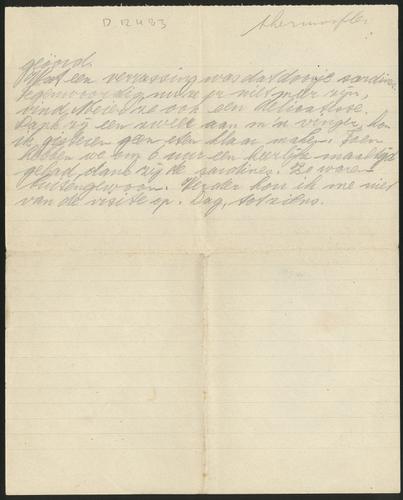 D 12483
gehoord.
Wat een verrassing was dat doosje sardin.
tegenwoordig, nu ze er niet meer zijn,
vind Meier ze ook een delicatesse.
een zweer aan m'n vinger, kon
ik gisteren geen eten klaar maken. Toen
hebben we om 6 uur een heerlijk maaltijd
gehad, dank zij de sardines. Ze waren
buitengewoon. Verder hou ik me niet
van de visite op. Dag, tot ziens.